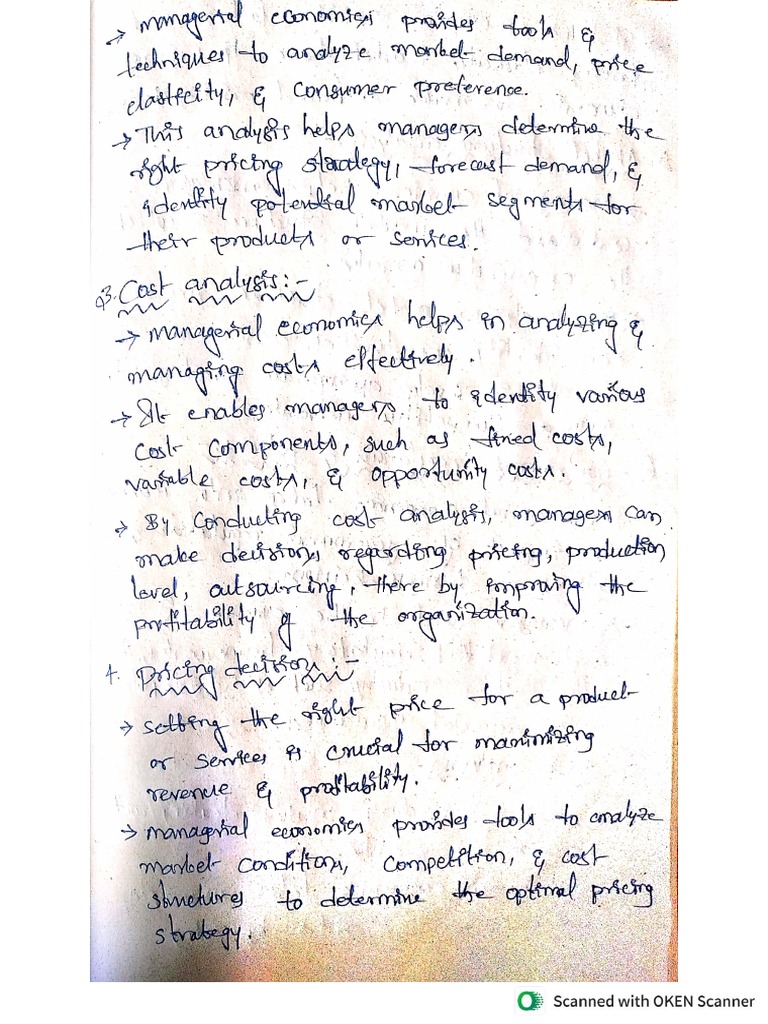 → managerial economics provides tools &
techniques to analyze market demand, price
elasticity, & consumer preference.
→ This analysis helps managers determine the
right pricing strategy, forecast demand, &
identify potential market segments for
their products or services.
3. Cost analysis:-
→ managerial economics helps in analyzing &
managing costs effectively.
→ It enables managers to identity various
cost components, such as fixed costs,
variable costs, & opportunity costs.
→ By conducting cost analysis, managers can
make decisions regarding pricing, production
level, outsourcing, there by improving the
profitability of the organization.
4. Pricing decisions:-
→ setting the right price for a product
or services is crucial for maximizing
revenue & profitability.
→ managerial economics provides tools to analyze
market conditions, competition, & cost
structures to determine the optimal pricing
strategy.
Scanned with OKEN Scanner